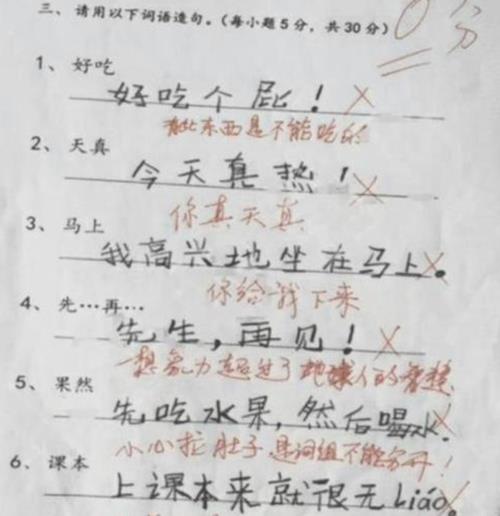 三、请用以下词语造句。(每小题5分，共30分) 0分
1、好吃
好吃个屁！
有些东西是不能吃的
2、天真
今天真热！
你真天真
3、马上
我高兴地坐在马上。
你给我下来
4、先…再…
先生，再见！
想象力超过了地球人的智慧
5、果然
先吃水果，然后喝水.
小心拉肚子 是词组不能分开！
6、课本
上课本来就很无Liáo。